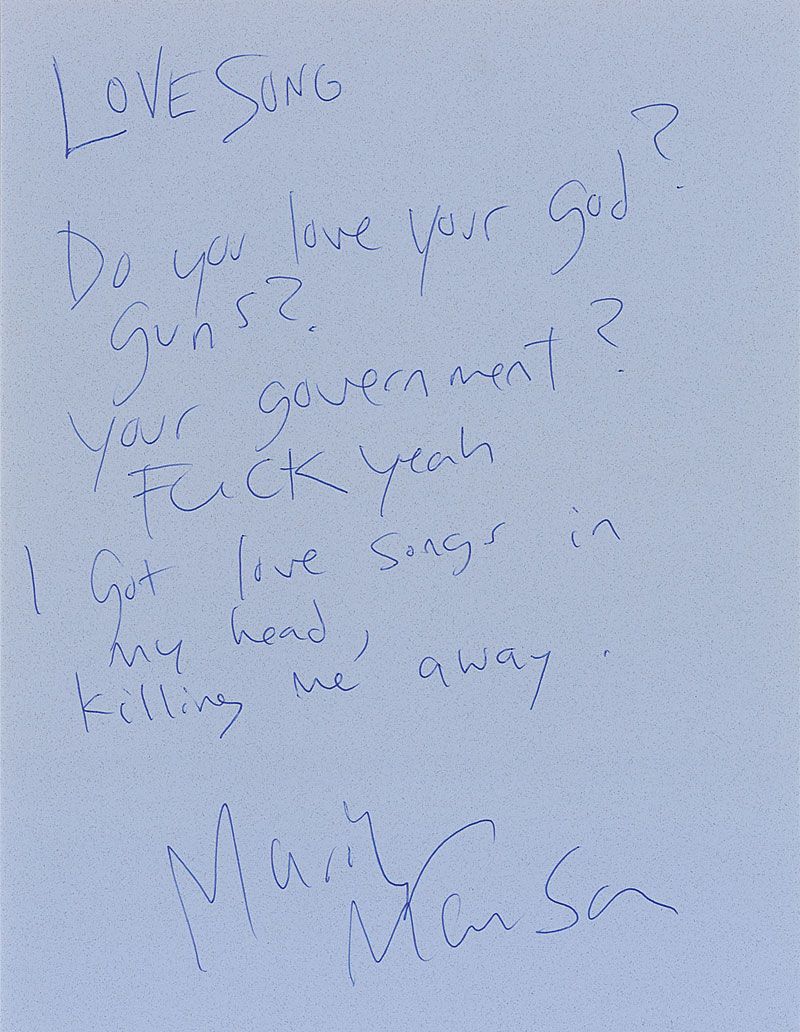 LOVE SONG
Do you love your god?
guns?
your government?
Fuck yeah
I Got love songs in
my head,
killing me away.
Marilyn
Manson